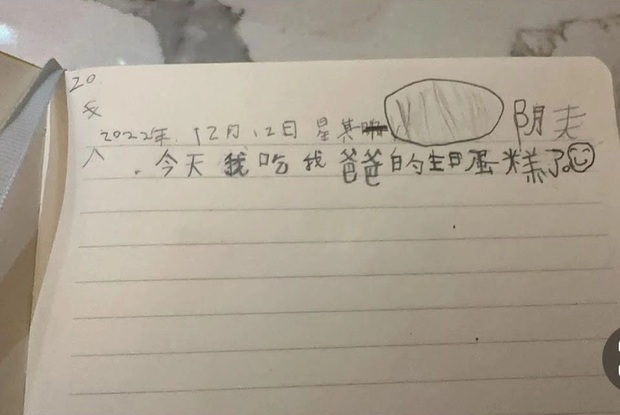 20
2022年,12月12日 星其 阴夫
入
.今天我吃我爸爸的生日蛋糕了。